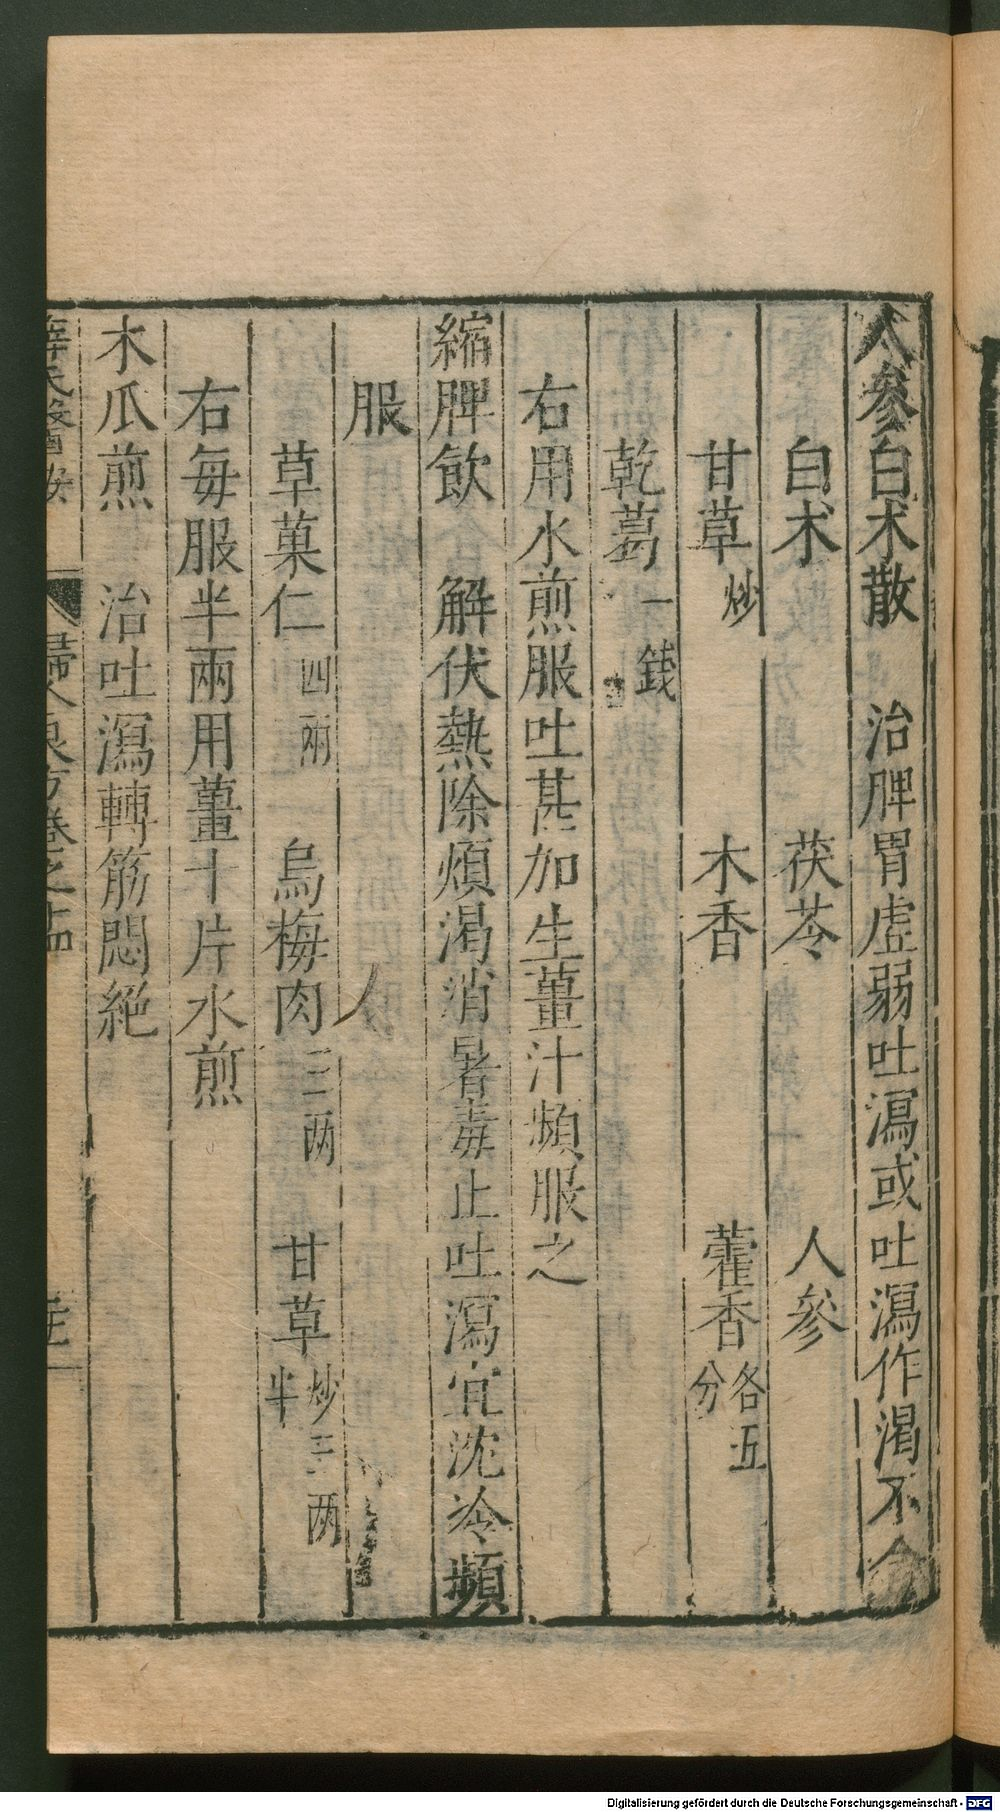 人參白术散　治脾胃虚弱吐瀉或吐瀉作渴不食
白术　茯苓　人參
甘草炒　木香　藿香各五分
乾葛一錢
右用水煎服吐甚加生薑汁頻服之
縮脾飲　解伏熱除煩渴消暑毒止吐瀉宜沈冷頻
服
草菓仁四兩　烏梅肉三两　甘草炒二两半
右每服半兩用薑十片水煎
木瓜煎　治吐瀉轉筋悶絕
薛氏醫按　婦人良方卷之
Digitalisierung gefördert durch die Deutsche Forschungsgemeinschaft - DFG